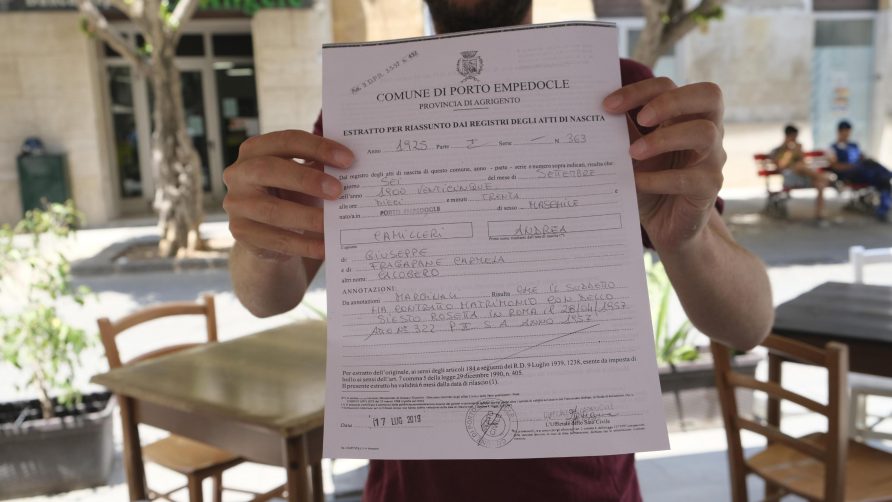 Mod. 3. D.P.R. 3-5-57 N. 432
COMUNE DI PORTO EMPEDOCLE
PROVINCIA DI AGRIGENTO
ESTRATTO PER RIASSUNTO DAI REGISTRI DEGLI ATTI DI NASCITA
Anno 1925 Parte I Serie — N. 363
Dal registro degli atti di nascita di questo comune, anno - parte - serie e numero sopra indicati, risulta che
il giorno SEI del mese di SETTEMBRE
dell'anno 1900 VENTICINQUE
alle ore DIECI e minuti TRENTA e
nato/a in PORTO EMPEDOCLE di sesso MASCHILE
CAMILLERI ANDREA
Cognome
di: GIUSEPPE
e di FRAGAPANE CARMELA
altri nomi: CALOGERO
ANNOTAZIONI:
Da annotazioni MARGINALI Risulta CHE IL SUDDETTO
HA CONTRATTO MATRIMONIO CON DELLO
SIESTO ROSETTA IN ROMA IL 28/04/1957
ATTO N° 322 P. II S. A ANNO 1957
Per estratto dell'originale, ai sensi degli articoli 184 e seguenti del R.D. 9 Luglio 1979, 1238, esente da imposta di
bollo ai sensi dell'art. 7 comma 5 della legge 29 dicembre 1990, n. 405.
Il presente estratto ha validità 6 mesi dalla data di rilascio (1).
Data 17 LUG 2019
L'Ufficiale dello Stato Civile